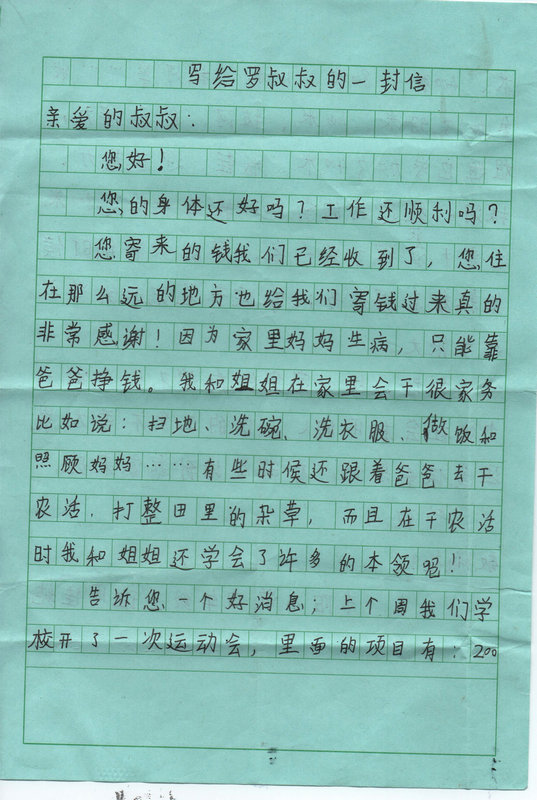 写给罗叔叔的一封信
亲爱的叔叔：
您好！
您的身体还好吗？工作还顺利吗？
您寄来的钱我们已经收到了，您住
在那么远的地方也给我们寄钱过来真的
非常感谢！因为家里妈妈生病，只能靠
爸爸挣钱。我和姐姐在家里会干很家务
比如说：扫地、洗碗、洗衣服、做饭和
照顾妈妈……有些时候还跟着爸爸去干
农活，打整田里的杂草，而且在干农活
时我和姐姐还学会了许多的本领呢！
告诉您一个好消息；上个周我们学
校开了一次运动会，里面的项目有：200